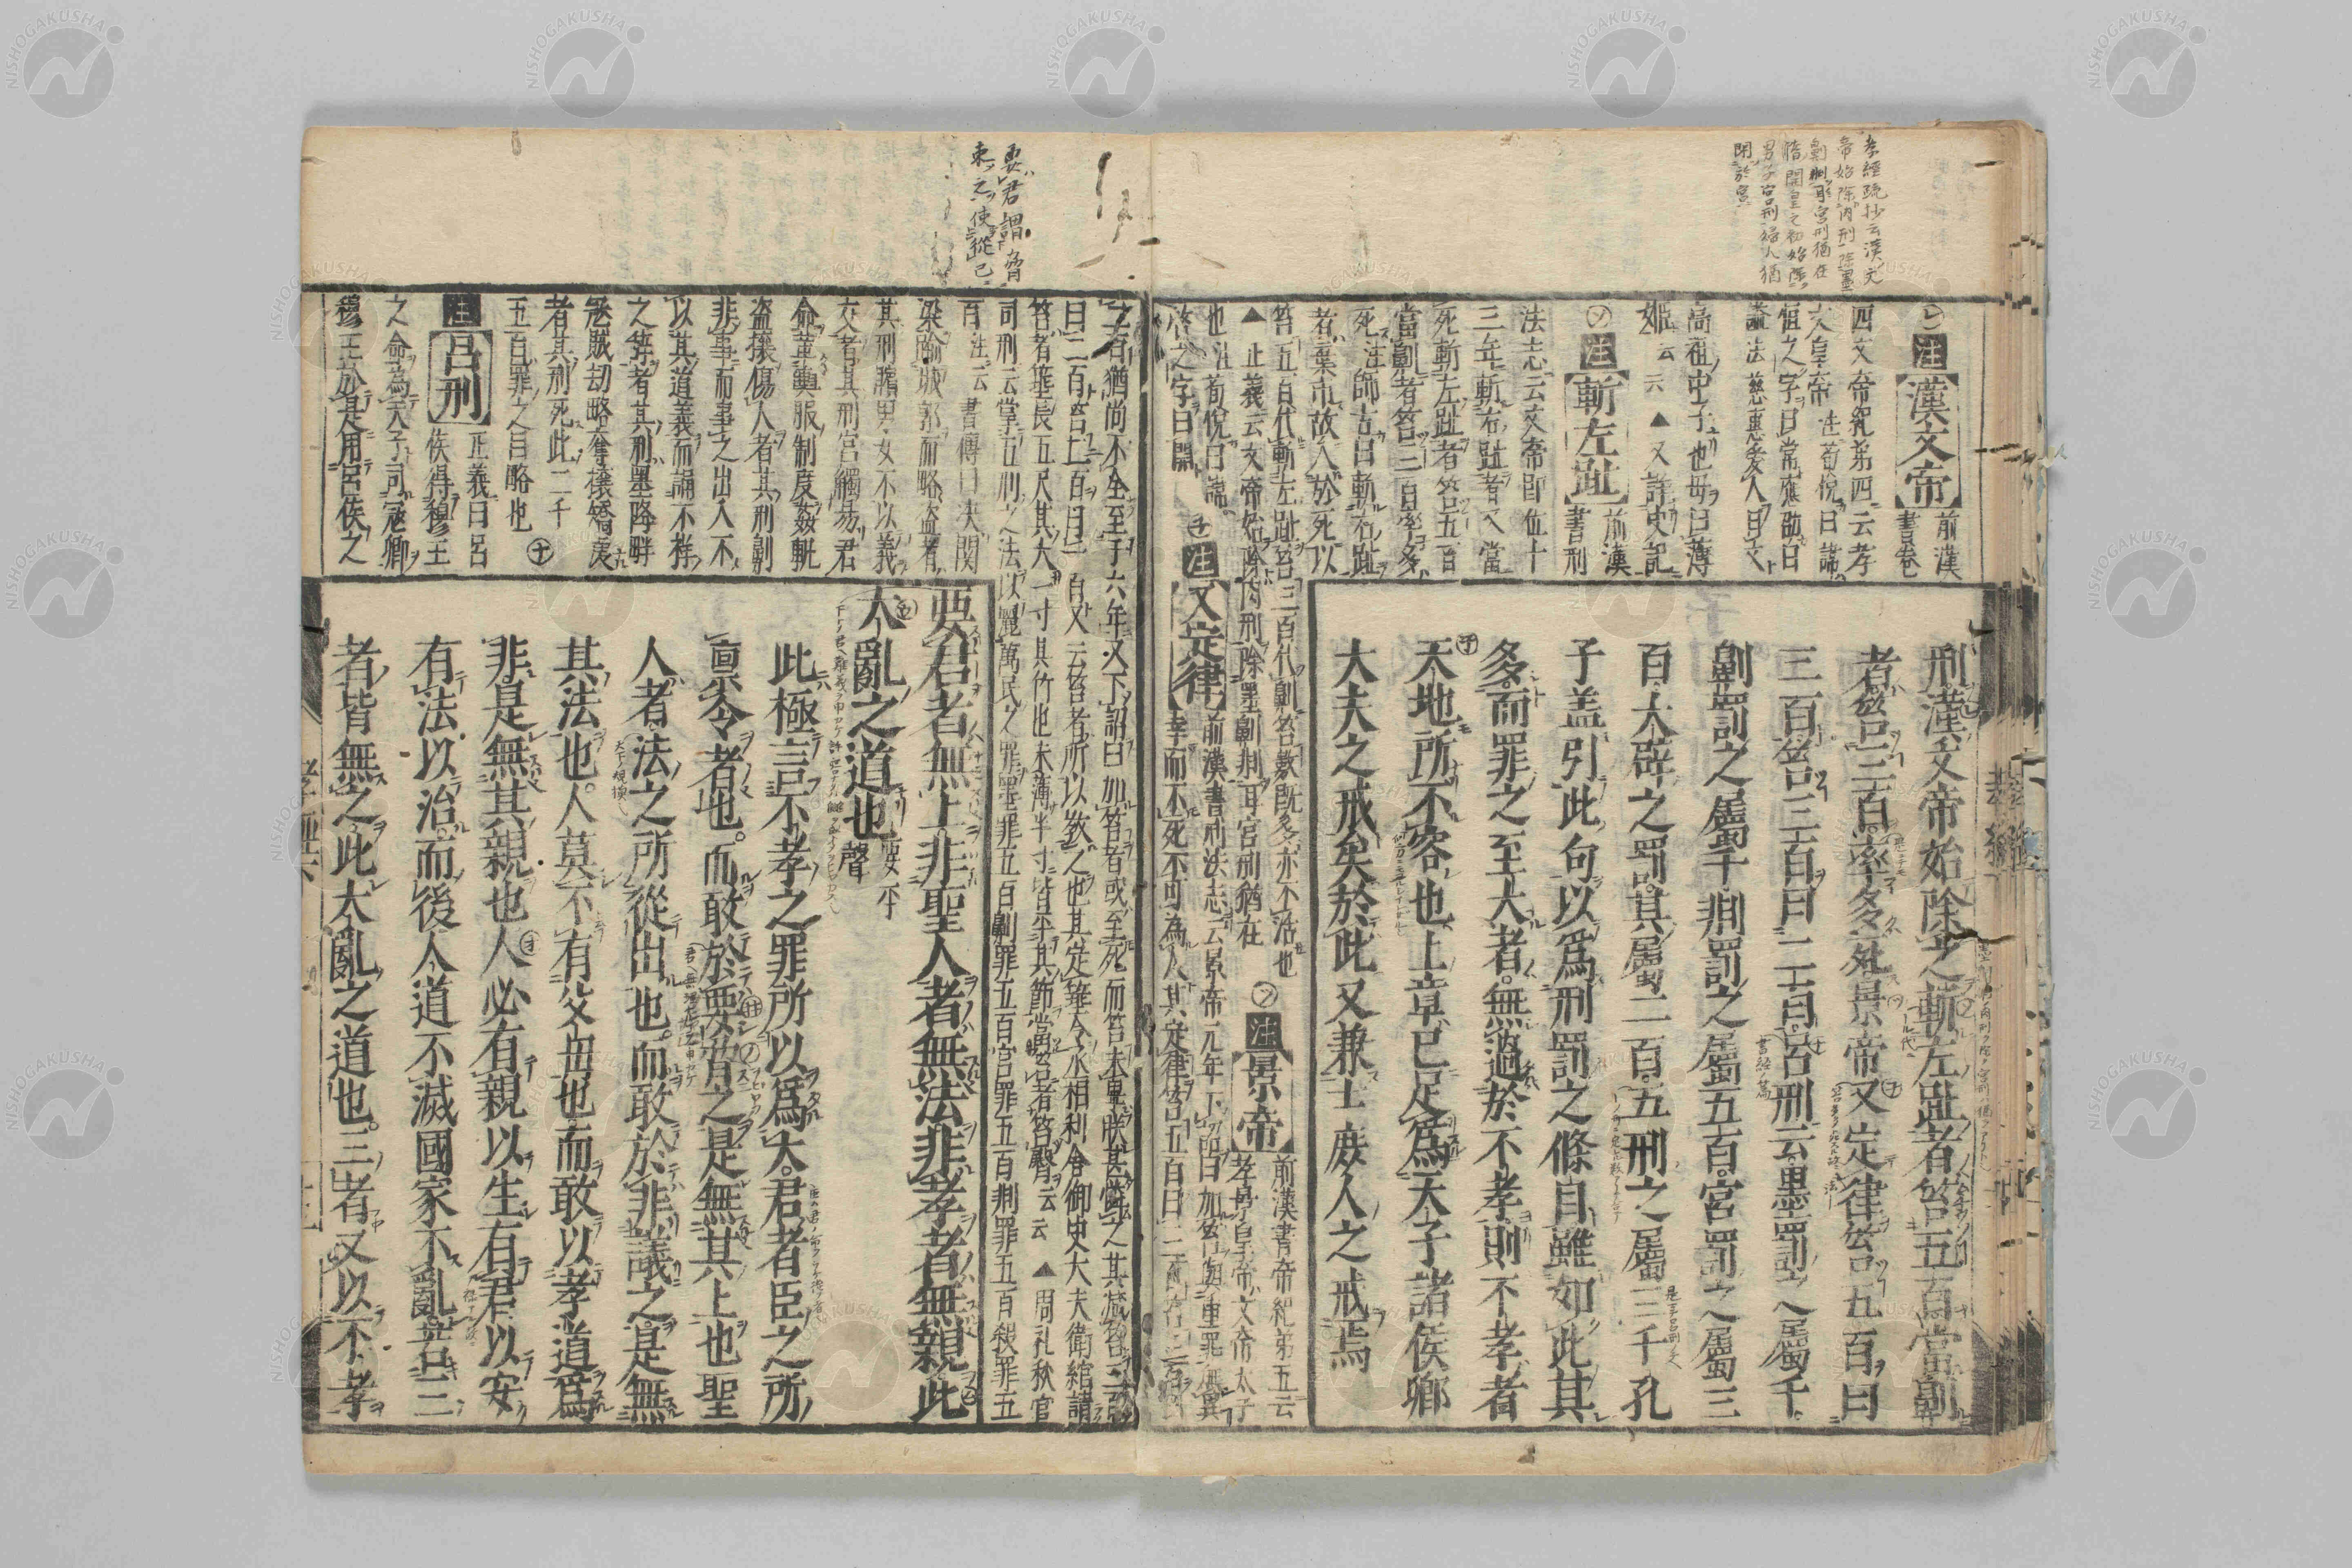 孝經疏抄云漢文
帝始除肉刑除墨
劓剕耳宮刑猶在
隋開皇之初始除
男子宮刑婦人猶
閉於宮
注 漢文帝 前漢書卷
四文帝紀第四云孝
文皇帝 注荀悅曰諱
恒之字曰常應劭曰
諡法慈惠愛人曰文
高祖中子也母曰薄
姬云云 ▲又詳史記
注 斬左趾 前漢書刑
法志云文帝即位十
三年斬右趾者又當
死斬左趾者笞五百
當劓者笞三百率多
死 注師古曰斬右趾
者棄市故入於死以
笞五百代斬左趾笞三百代劓笞數既多亦不活也
▲正義云文帝始除肉刑除墨劓剕耳宮刑猶在
注 景帝 前漢書帝紀第五云
孝景皇帝文帝太子
也 注荀悅曰諱
啓之字曰開
注 又定律 前漢書刑法志云景帝元年下詔曰加笞與重罪無異
幸而不死不可為人其定律笞五百曰三百
刑漢文帝始除之斬左趾者笞五百當劓
者笞三百率多死景帝又定律笞五百曰
三百笞三百曰二百呂刑云墨罰之屬千
劓罰之屬千剕罰之屬五百宮罰之屬三
百大辟之罰其屬二百五刑之屬三千孔
子盖引此句以爲刑罰之條自雖如此其
多而罪之至大者無過於不孝則不孝者
天地所不容也上章已足爲天子諸侯卿
大夫之戒矣於此又兼士庶人之戒焉
要君謂脅
束之使從己
之者猶尚不全至于六年又下詔曰加笞者或至死而笞未畢朕甚憐之其減笞三百
曰二百笞二百曰一百又云笞者所以教之也其定箠令丞相劉舍御史大夫衛綰請
笞者箠長五尺其大一寸其竹也末薄半寸皆平其節當笞者笞臀云云 ▲周礼秋官
司刑云掌五刑之法以麗萬民之罪墨罪五百劓罪五百宮罪五百剕罪五百殺罪五
百 注云書傳曰決関
梁踰城郭而略盜者
其刑臏男女不以義
交者其刑宮觸易君
命革輿服制度姦軌
盜攘傷人者其刑劓
非事而事之出入不
以其道義而誦不祥
之辭者其刑墨降畔
寇賊劫略奪攘矯虔
者其刑死此二千
五百罪之目略也
注 呂刑 正義曰呂
侯得穆王
之命為天子司寇卿
穆王於是用呂侯之
要君者無上非聖人者無法非孝者無親此
大亂之道也 要平聲
此極言不孝之罪所以爲大君者臣之所
稟令者也而敢於要脅之是無其上也聖
人者法之所從出也而敢於非議之是無
其法也人莫不有父母也而敢以孝道爲
非是無其親也人必有親以生有君以安
有法以治而後人道不滅國家不亂若三
者皆無之此大亂之道也三者又以不孝